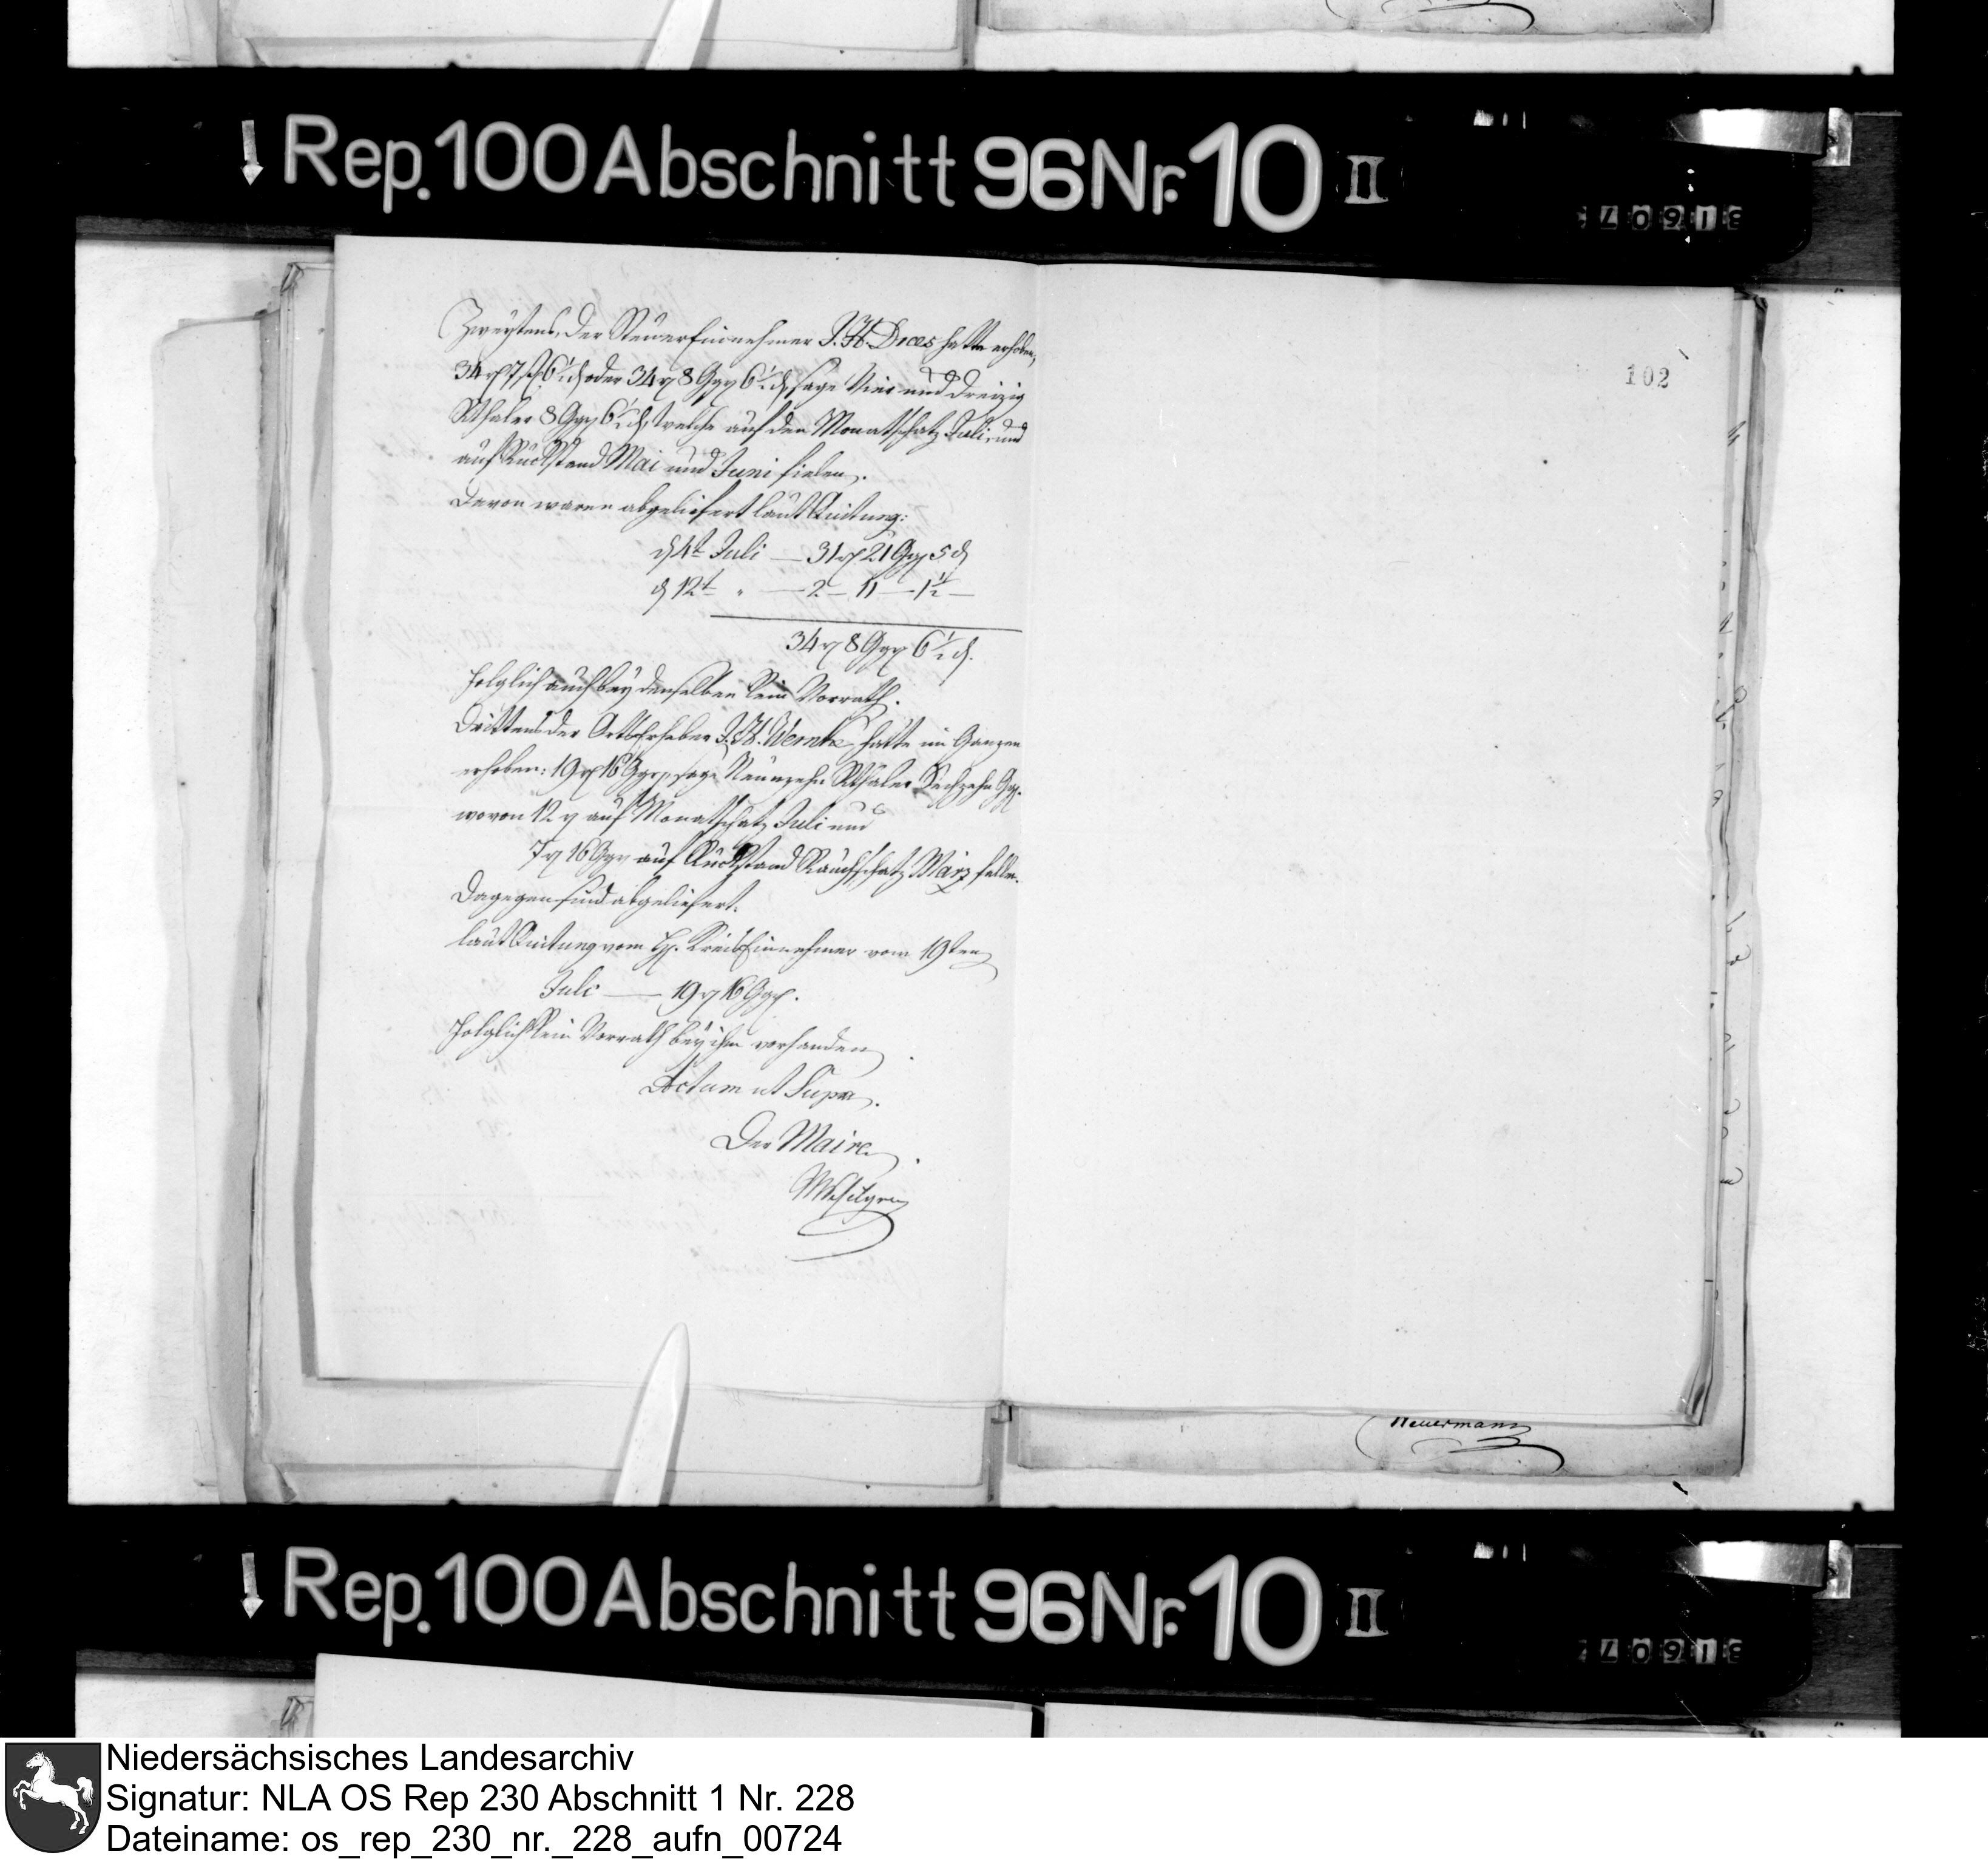 Rep. 100 Abschnitt 96 Nr. 10 II
31607
102
Zweytens, der Steuer Einnehmer J. H. Drees hatte erhoben,
34 rt 7 ß 6 ½ d oder 34 rt 8 Ggr 6 ½ d, sage Vier und dreizig
Rthaler 8 Ggr 6 ½ d, welche auf den Monatschatz Juli und
auf Rückstand Mai und Juni fielen.
Davon waren abgeliefert laut Quitung:
d 4t Juli — 31 rt 21 Ggr 5 d
d 12t " — 2 — 11 — 1 ½ —
34 rt 8 Ggr 6 ½ d.
folglich auch bey denselben kein Vorrath.
Drittens der Orts Erheber J. H. Wernke hatte im Ganzen
erhoben: 19 rt 16 Ggr, sage Neunzehn Rthaler Sechzehn Ggr.
wovon 12 rt auf Monatschatz Juli und
7 rt 16 Ggr auf Rückstand Rauchschatz März fallen.
Dagegen sind abgeliefert.
laut Quitung vom H. Kreis Einnehmer vom 19ten
Juli — 19 rt 16 Ggr.
folglich kein Vorrath bey ihm vorhanden.
Actum ut Supra.
Der Maire.
Neuermann
Rep. 100 Abschnitt 96 Nr. 10 II
31607
Niedersächsisches Landesarchiv
Signatur: NLA OS Rep 230 Abschnitt 1 Nr. 228
Dateiname: os_rep_230_nr._228_aufn_00724